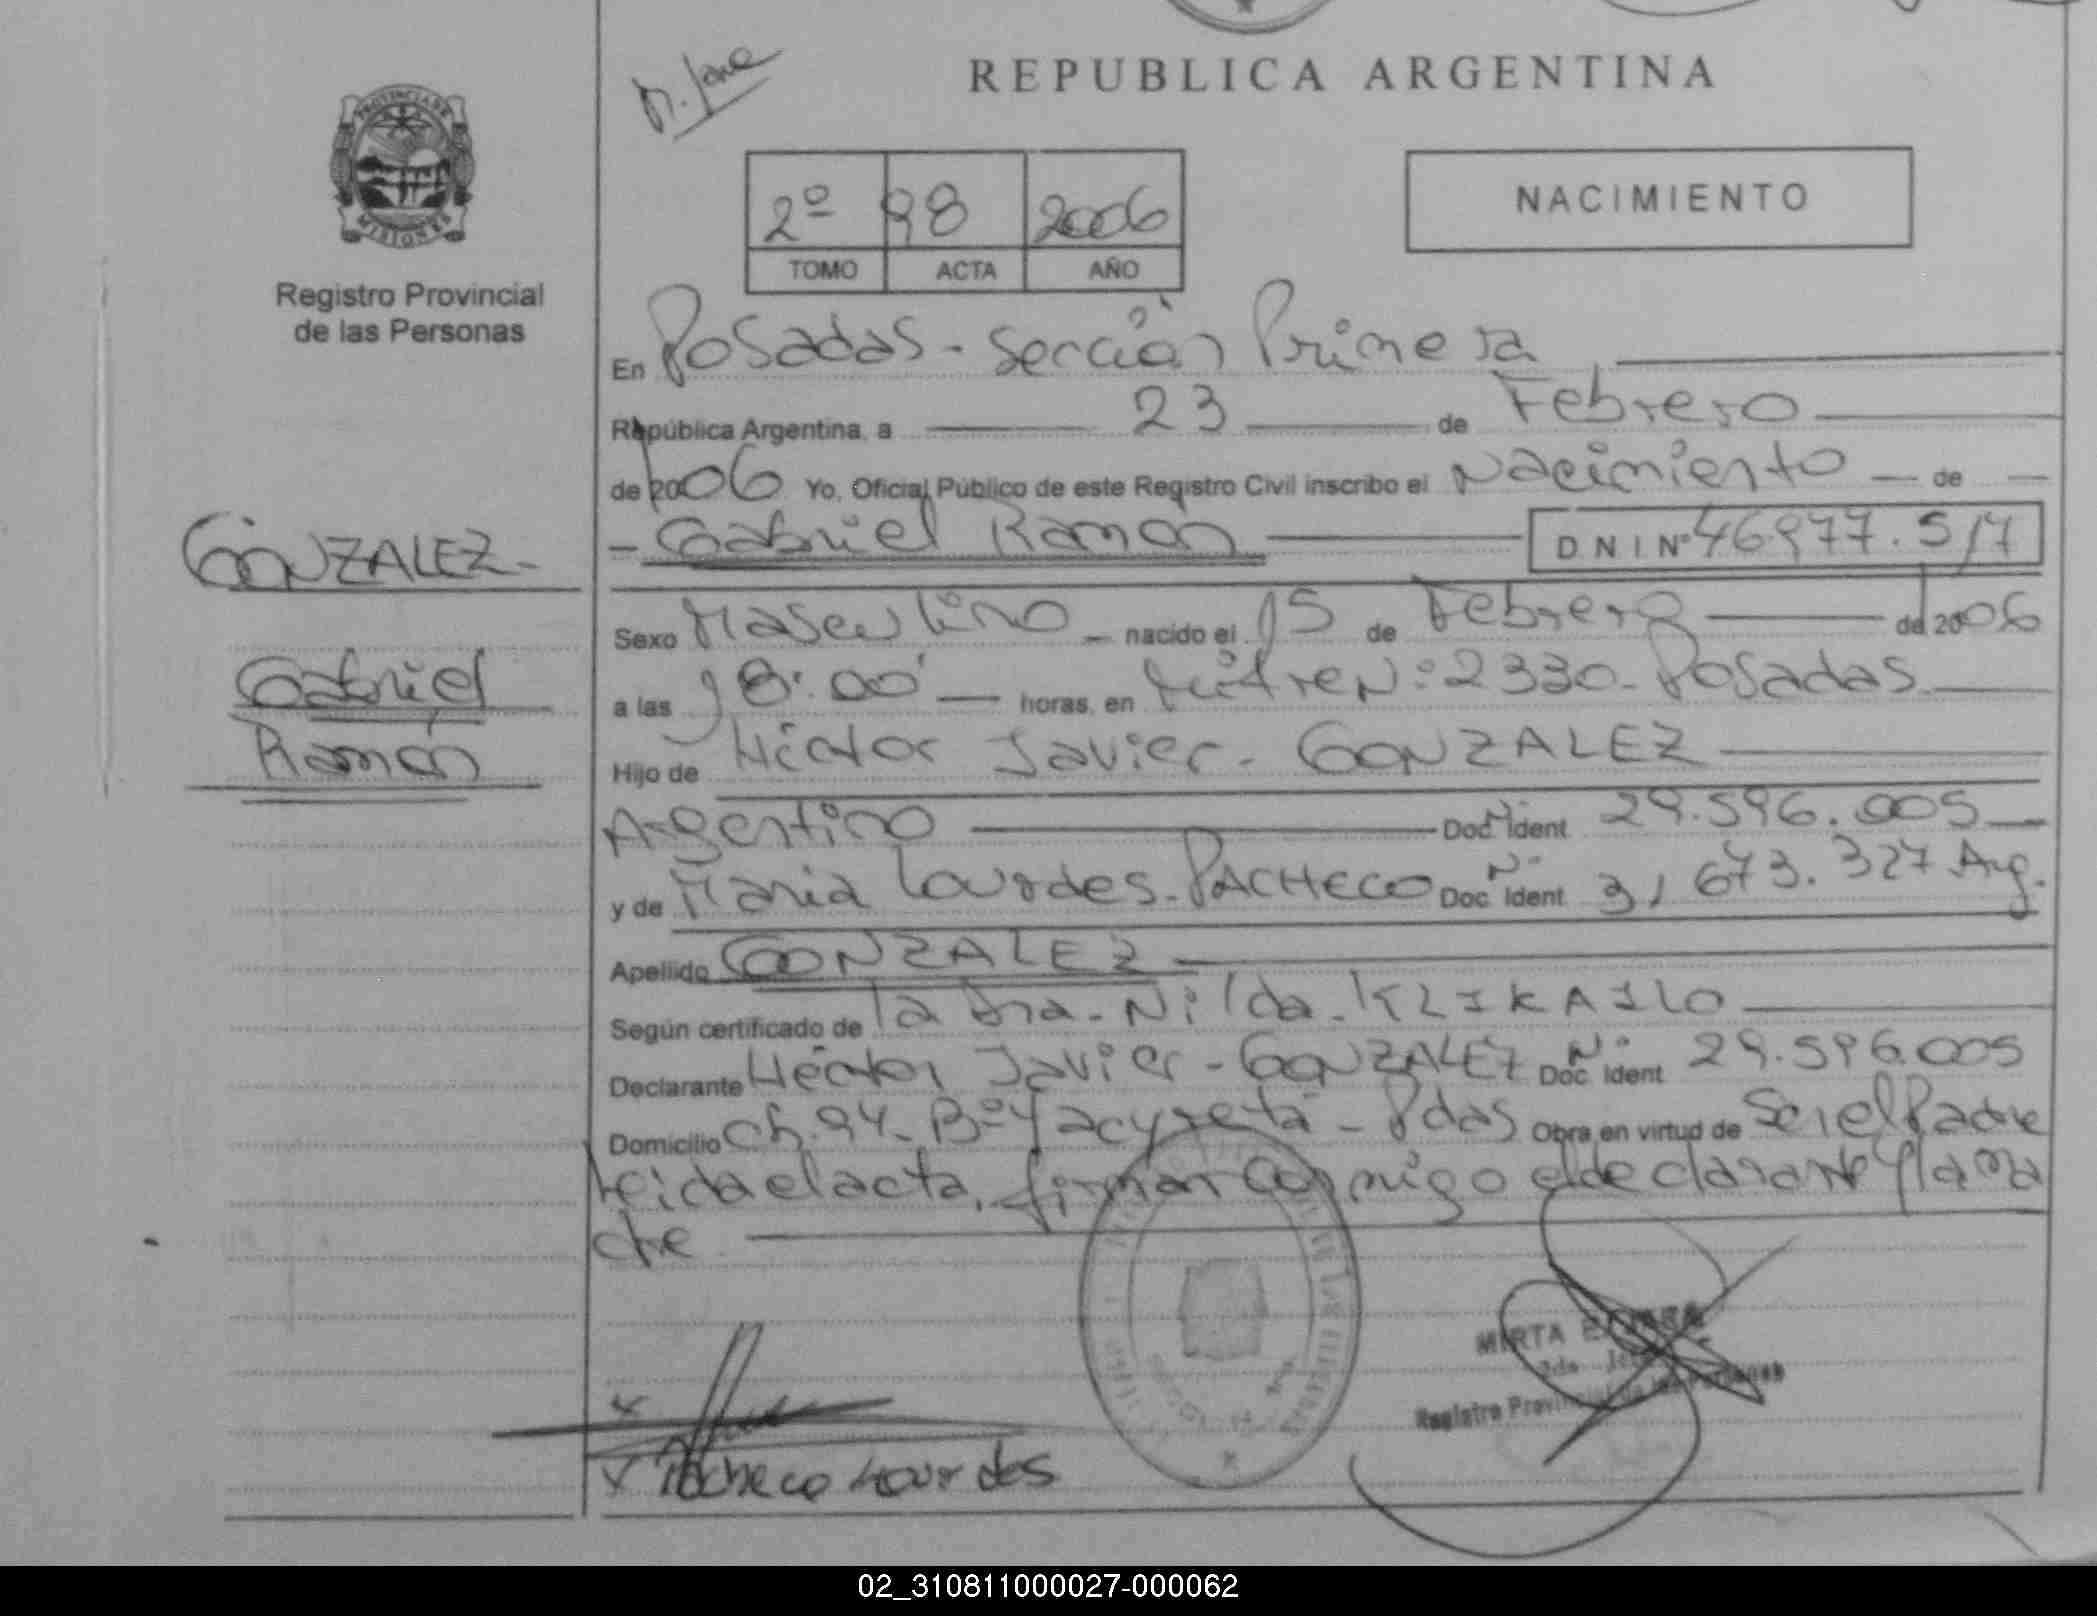 REPUBLICA ARGENTINA
PROVINCIA DE
MISIONES
Registro Provincial
de las Personas
2º 98 2006
TOMO ACTA AÑO
NACIMIENTO
En Posadas - Sección Primera
República Argentina, a 23 de Febrero
de 2006 Yo, Oficial Público de este Registro Civil inscribo el Nacimiento de
Gabriel Ramón DNI Nº 46.977.517
GONZALEZ
Gabriel
Ramón
Sexo Masculino nacido el 15 de Febrero de 2006
a las 18:00 horas, en Mitre Nº 2330 - Posadas
Hijo de Héctor Javier - GONZALEZ
Argentino Doc. Nº Ident 29.596.005
y de María Lourdes - PACHECO Doc. Nº Ident 31.673.327 Arg.
Apellido GONZALEZ
Según certificado de la Dra. Nilda - KLIKAILO
Declarante Héctor Javier - GONZALEZ Doc. Nº Ident 29.596.005
Domicilio Ch. 94 - Bº Yacyretá - Pdas Obra en virtud de Ser el Padre
Leida el acta, firman conmigo el declarante y la ma
dre
MIRTA
Registro Provincial de las Personas
x
x Pacheco Lourdes
02_310811000027-000062